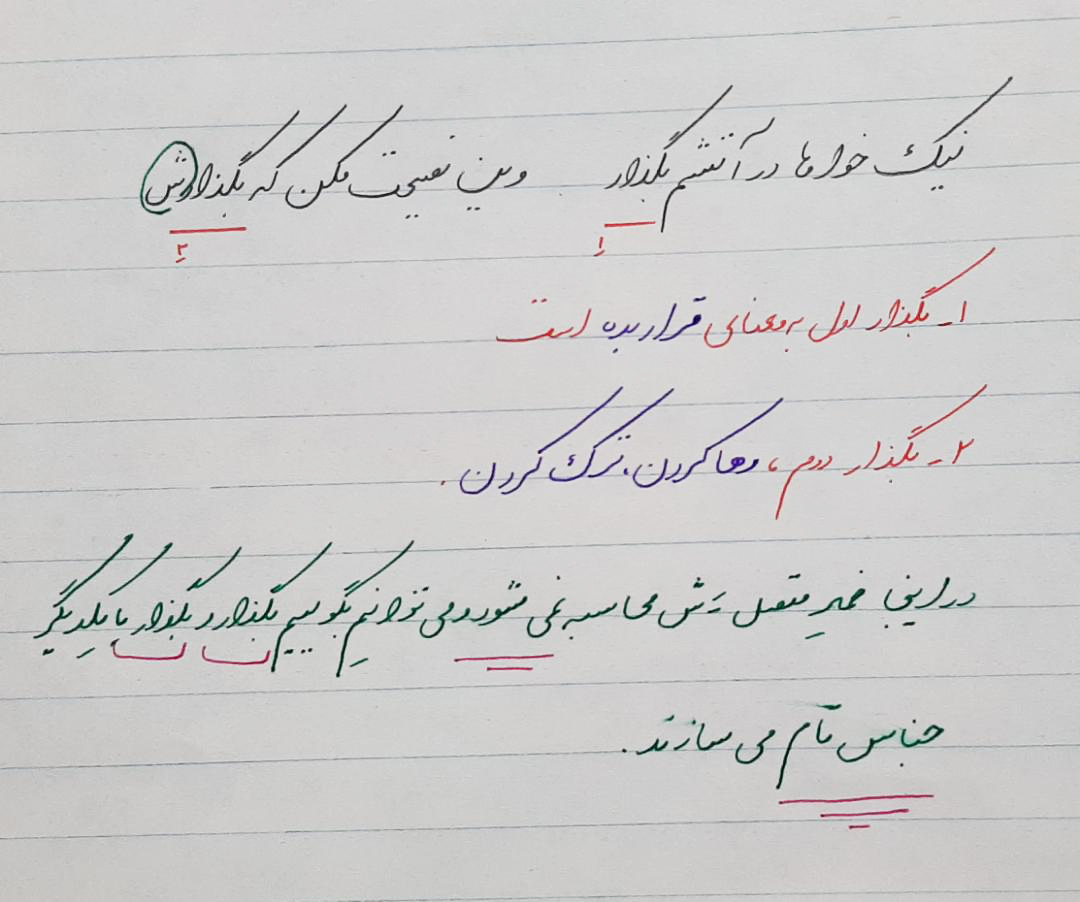 نیک خواها در آتشم بگذار وین نصیحت مکن که بگذارش
۱ ۲
۱ـ بگذار اول به معنای قرار بده است
۲ـ بگذار دوم، رها کردن، ترک کردن.
در اینجا ضمیرِ متصل ـَش محاسبه نمی شود و می توانیم بگوییم بگذار و بگذار با یکدیگر
جناس تام می سازند.